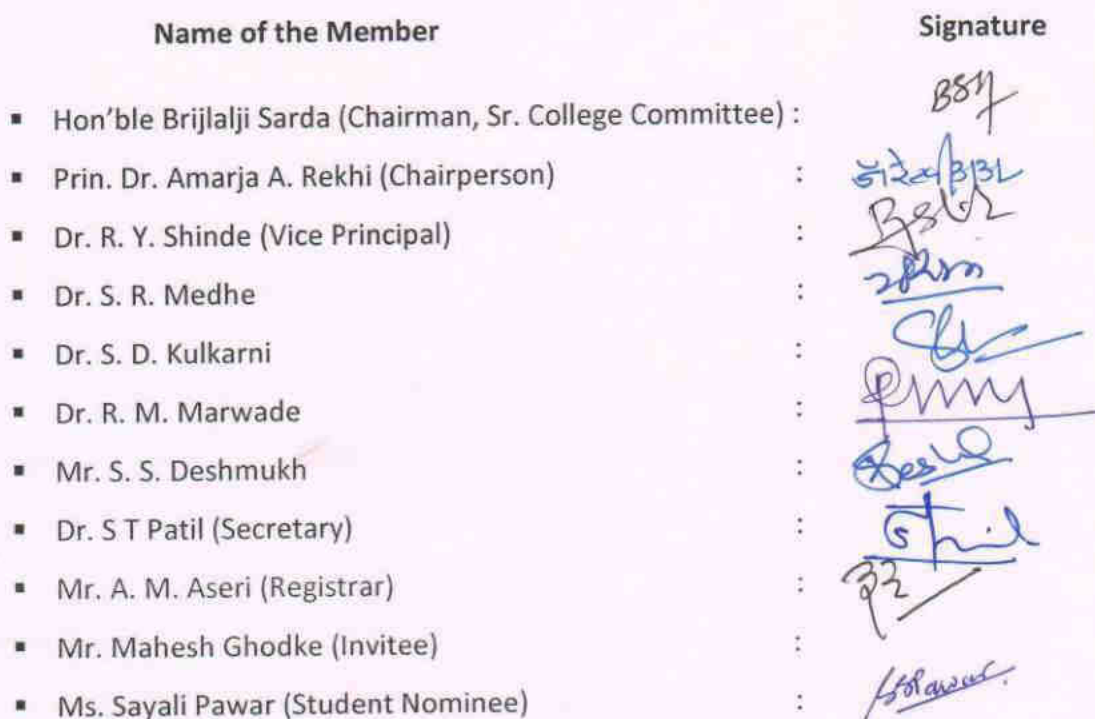 Name of the Member Signature
▪ Hon'ble Brijlalji Sarda (Chairman, Sr. College Committee) :
▪ Prin. Dr. Amarja A. Rekhi (Chairperson) :
▪ Dr. R. Y. Shinde (Vice Principal) :
▪ Dr. S. R. Medhe :
▪ Dr. S. D. Kulkarni :
▪ Dr. R. M. Marwade :
▪ Mr. S. S. Deshmukh :
▪ Dr. S T Patil (Secretary) :
▪ Mr. A. M. Aseri (Registrar) :
▪ Mr. Mahesh Ghodke (Invitee) :
▪ Ms. Sayali Pawar (Student Nominee) :